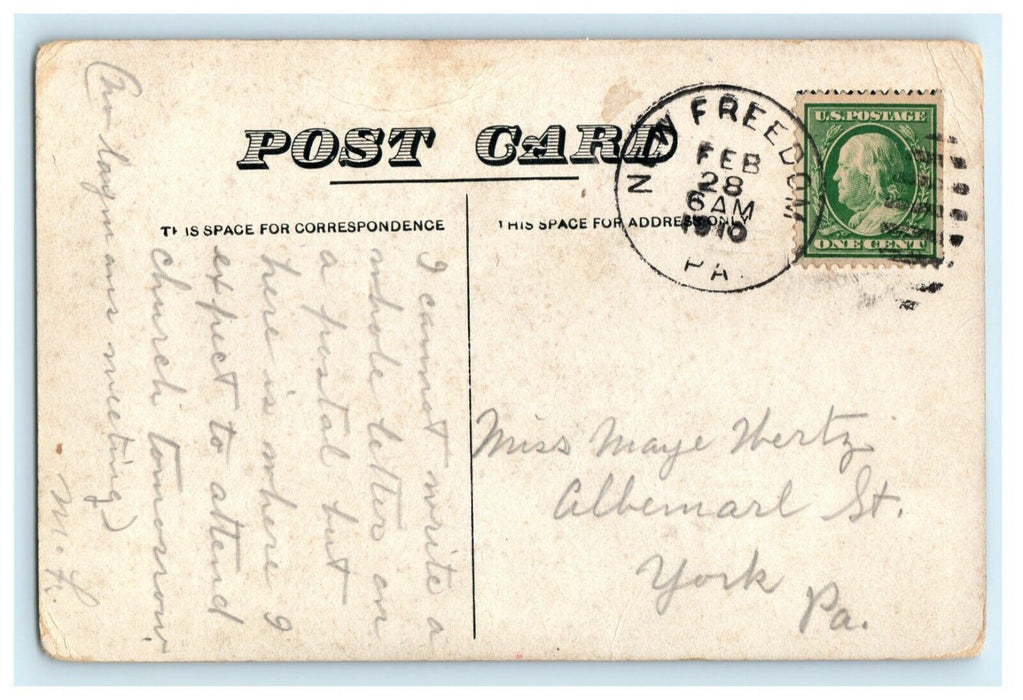 POST CARD
THIS SPACE FOR CORRESPONDENCE
THIS SPACE FOR ADDRESS ONLY
NEW FREEDOM
FEB
28
6 AM
1910
PA.
U.S. POSTAGE
ONE CENT
I cannot write a
whole letter on
a postal but
here is where I
expect to attend
church tomorrow.
(Our laymans meeting)
M. L.
Miss Maye Wertz
Albemarl St.
York
Pa.